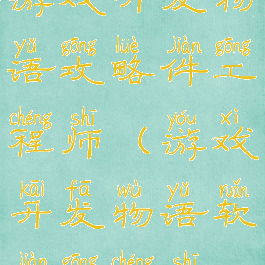 游戏开发物
yǔ gōng luè jiàn gōng
语攻略件工
chéng shī yóu xì
程师（游戏
kāi fā wù yǔ ruǎn
开发物语软
jiàn gōng chéng shī